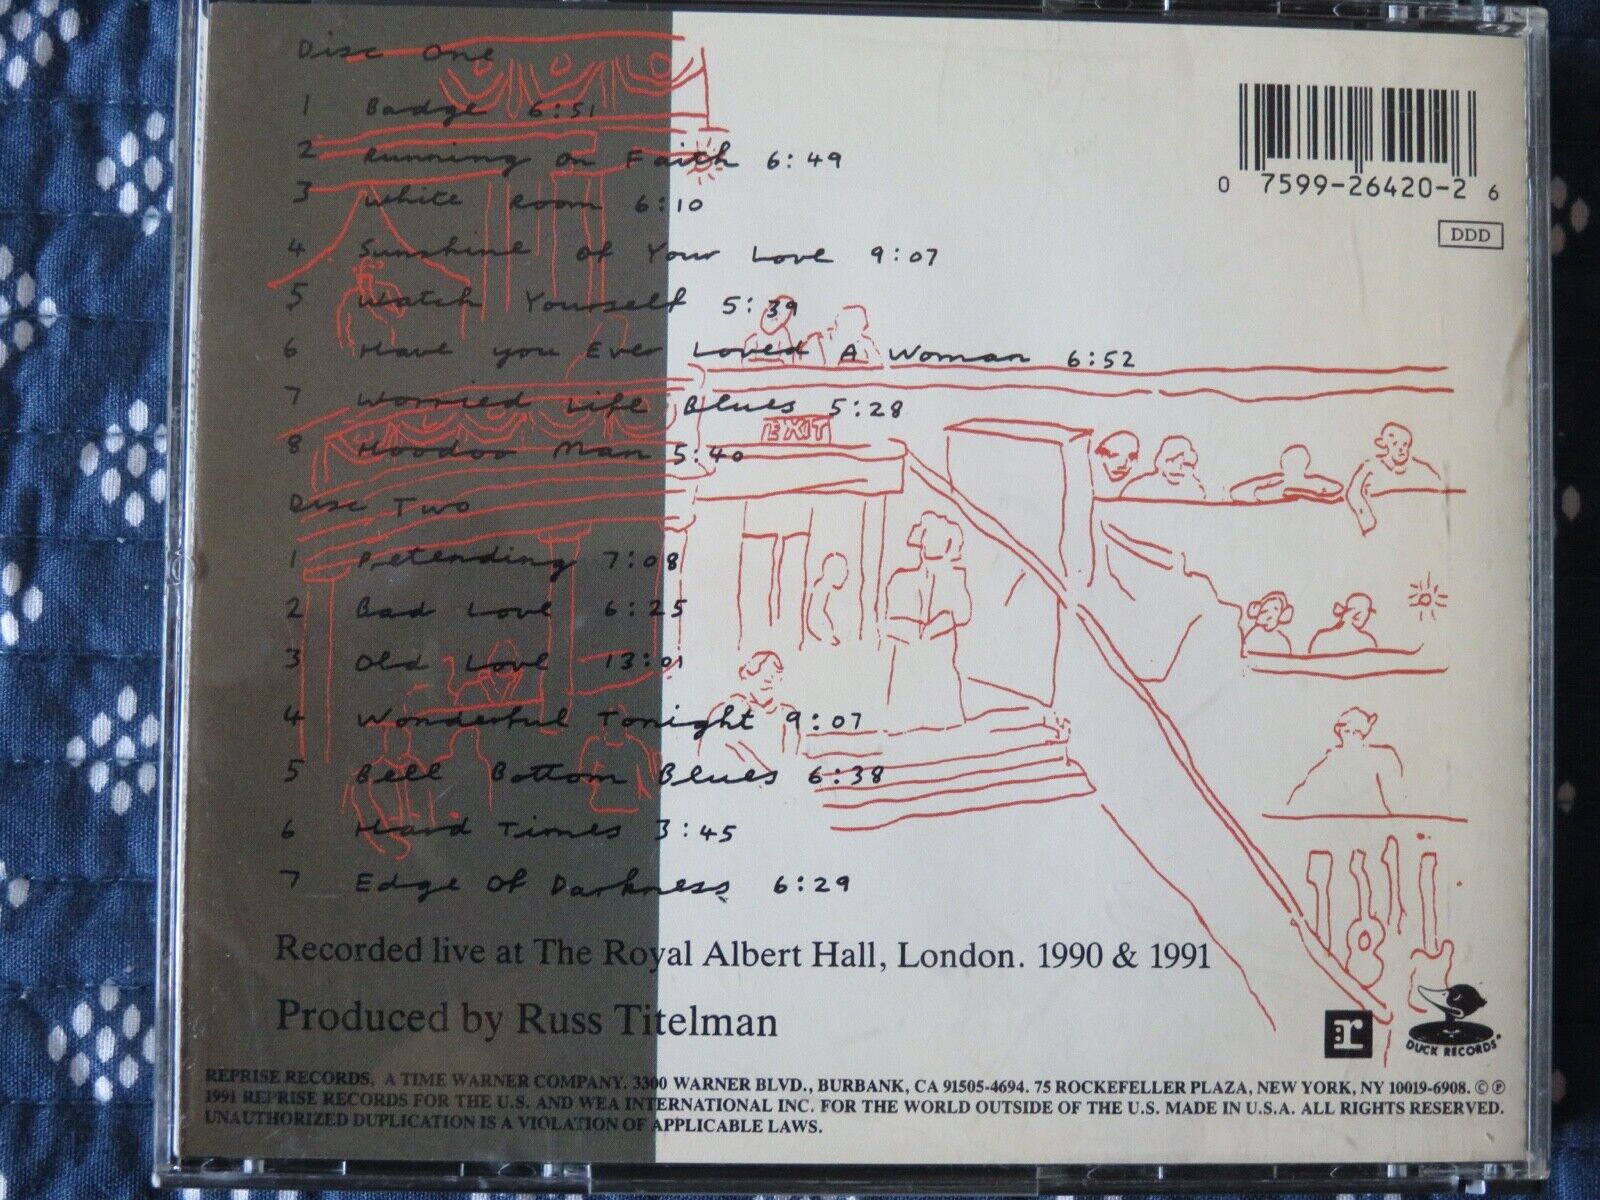 Disc One
1 Badge 6:51
2 Running on Faith 6:49
3 White Room 6:10
4 Sunshine Of Your Love 9:07
5 Watch Yourself 5:39
6 Have you Ever Loved A Woman 6:52
7 Worried Life Blues 5:28
8 Hoodoo Man 5:40
Disc Two
1 Pretending 7:08
2 Bad Love 6:25
3 Old Love 13:01
4 Wonderful Tonight 9:07
5 Bell Bottom Blues 6:38
6 Hard Times 3:45
7 Edge Of Darkness 6:29
Recorded live at The Royal Albert Hall, London. 1990 & 1991
Produced by Russ Titelman
REPRISE RECORDS, A TIME WARNER COMPANY. 3300 WARNER BLVD., BURBANK, CA 91505-4694. 75 ROCKEFELLER PLAZA, NEW YORK, NY 10019-6908. © ℗
1991 REPRISE RECORDS FOR THE U.S. AND WEA INTERNATIONAL INC. FOR THE WORLD OUTSIDE OF THE U.S. MADE IN U.S.A. ALL RIGHTS RESERVED.
UNAUTHORIZED DUPLICATION IS A VIOLATION OF APPLICABLE LAWS.
0 7599-26420-2 6
DDD
EXIT
r
DUCK RECORDS